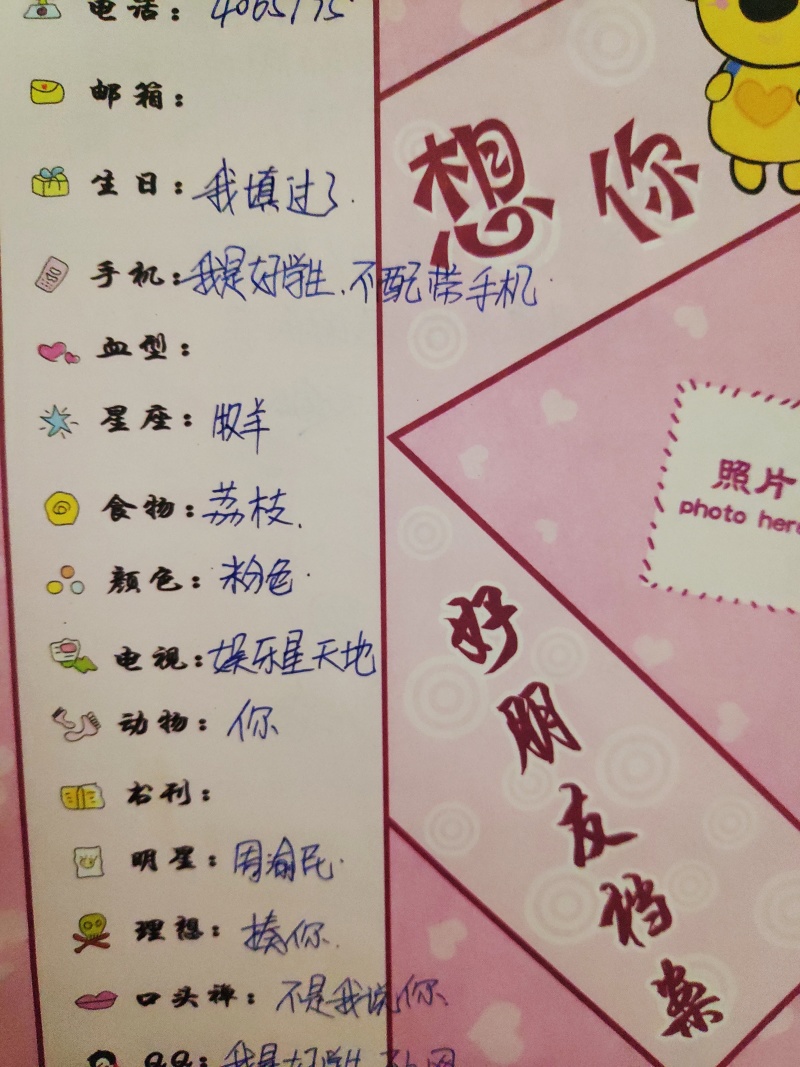 电话：4065175
邮箱：
生日：我填过了.
手机：我是好学生.不配带手机.
血型：
星座：牧羊
食物：荔枝.
颜色：粉色.
电视：娱乐星天地
动物：你
书刊：
明星：周渝民.
理想：揍你.
口头禅：不是我说你
QQ：我是好学生
想你
照片
photo here
好朋友档案